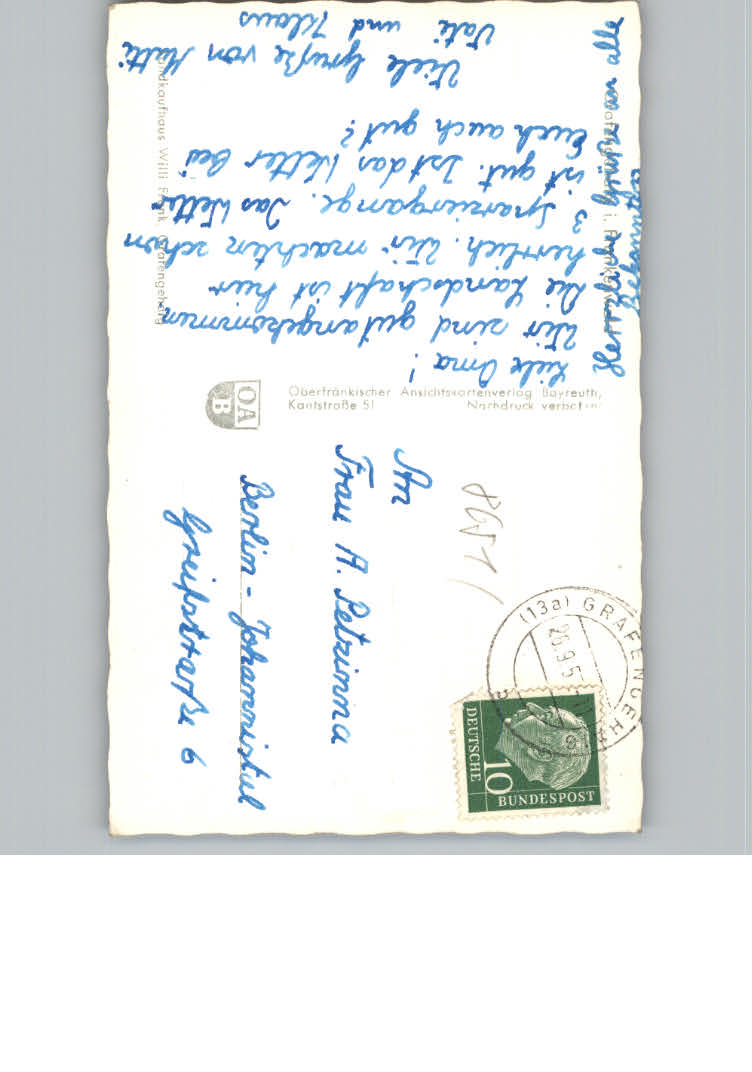 Liebe Oma!
Wir sind gut angekommen
Die Landschaft ist hier
herrlich. Wir machten schon
3 Spaziergänge. Das Wetter
ist gut. Ist das Wetter bei
Euch auch gut?
Viele Grüße von Mutti
Vati und Klaus
Herzliche Grüße an alle
Bekannten
i. Frankenwald
Landkaufhaus Willi Frank, Grafengehaig
OA
B
Oberfränkischer Ansichtskartenverlag Bayreuth,
Kantstraße 51 Nachdruck verboten
8651
An
Frau A. Petrinna
Berlin - Johannistal
Greifstraße 6
(13a) GRAFENGEHAIG
26.9.5
DEUTSCHE
BUNDESPOST
10